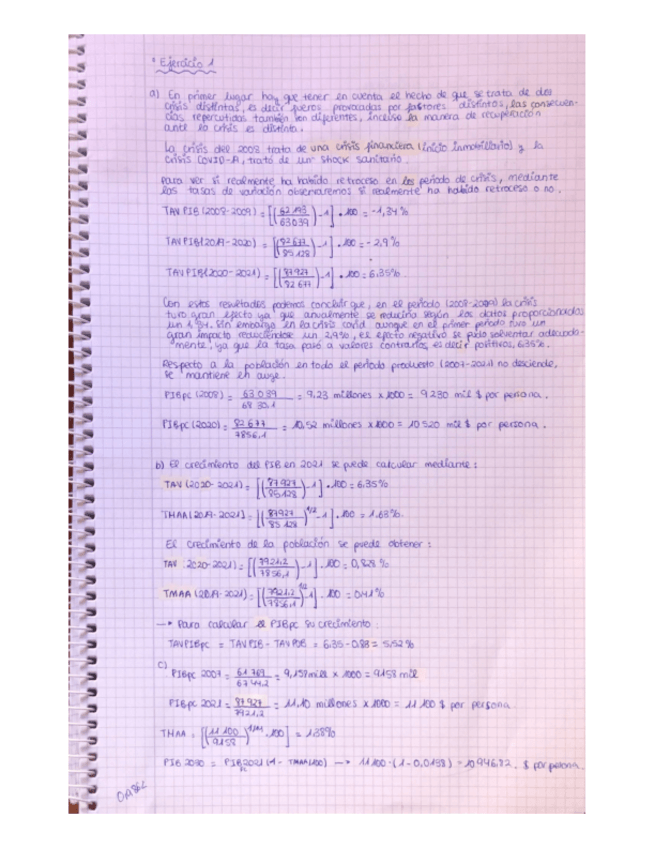 * Ejercicio 1
a) En primer lugar hay que tener en cuenta el hecho de que se trata de dos
crisis distintas, es decir fueros provocadas por factores distintos, las consecuen-
cias repercutidas también son diferentes, incluso la manera de recuperación
ante la crisis es distinta.
La crisis del 2008 trata de una crisis financiera (inicio inmobiliario) y la
crisis COVID-A, trató de un shock sanitario.
Para ver si realmente ha habido retroceso en los periodo de crisis, mediante
las tasas de variación observaremos si realmente ha habido retroceso o no.
TAV PIB (2008-2009) = [(62193/63039) - 1] · 100 = -1,34%
TAV PIB (2019-2020) = [(82677/85128) - 1] · 100 = -2,9%
TAV PIB (2020-2021) = [(87927/82677) - 1] · 100 = 6.35%
Con estos resultados podemos concluir que, en el periodo (2008-2009) la crisis
tuvo gran efecto ya que anualmente se reducira según los datos proporcionados
un 1'34. Sin embargo en la crisis covid aunque en el primer periodo tuvo un
gran impacto reduciéndose un 2,9%, el efecto negativo se pudo solventar adecuada-
mente, ya que la tasa pasó a valores contrarios, es decir positivos, 6.35%.
Respecto a la población en todo el periodo propuesto (2007-2021) no desciende,
se mantiene en auge.
PIBpc (2008) = 63039 / 6830.1 = 9,23 millones x1000 = 9230 mil $ por persona.
PIBpc (2020) = 82677 / 7856,1 = 10,52 millones x1000 = 10520 mil $ por persona.
b) El crecimiento del PIB en 2021 se puede calcular mediante:
TAV (2020-2021) = [(87927/85128) - 1] · 100 = 6.35%
TMAA (2019-2021) = [(87927/85128)^1/2 - 1] · 100 = 1.63%
El crecimiento de la población se puede obtener:
TAV (2020-2021) = [(7921,2/7856,1) - 1] · 100 = 0,828 %
TMAA (2019-2021) = [(7921,2/7856,1)^1/2 - 1] · 100 = 0,41%
→ Para calcular el PIBpc su crecimiento:
TAVPIBpc = TAVPIB - TAVPOB = 6.35 - 0.83 = 5.52%
c) PIBpc 2007 = 61769 / 6744,2 = 9,158 mill x 1000 = 9158 mil
PIBpc 2021 = 87927 / 7921,2 = 11,10 millones x 1000 = 11 100 $ por persona
TMAA = [(11 100/9158)^1/14 · 100] = 1.38%
= PIB2021 (1 - TMAA/100) → 11100 · (1 - 0,0138) = 10946.82 $ por persona.
pc